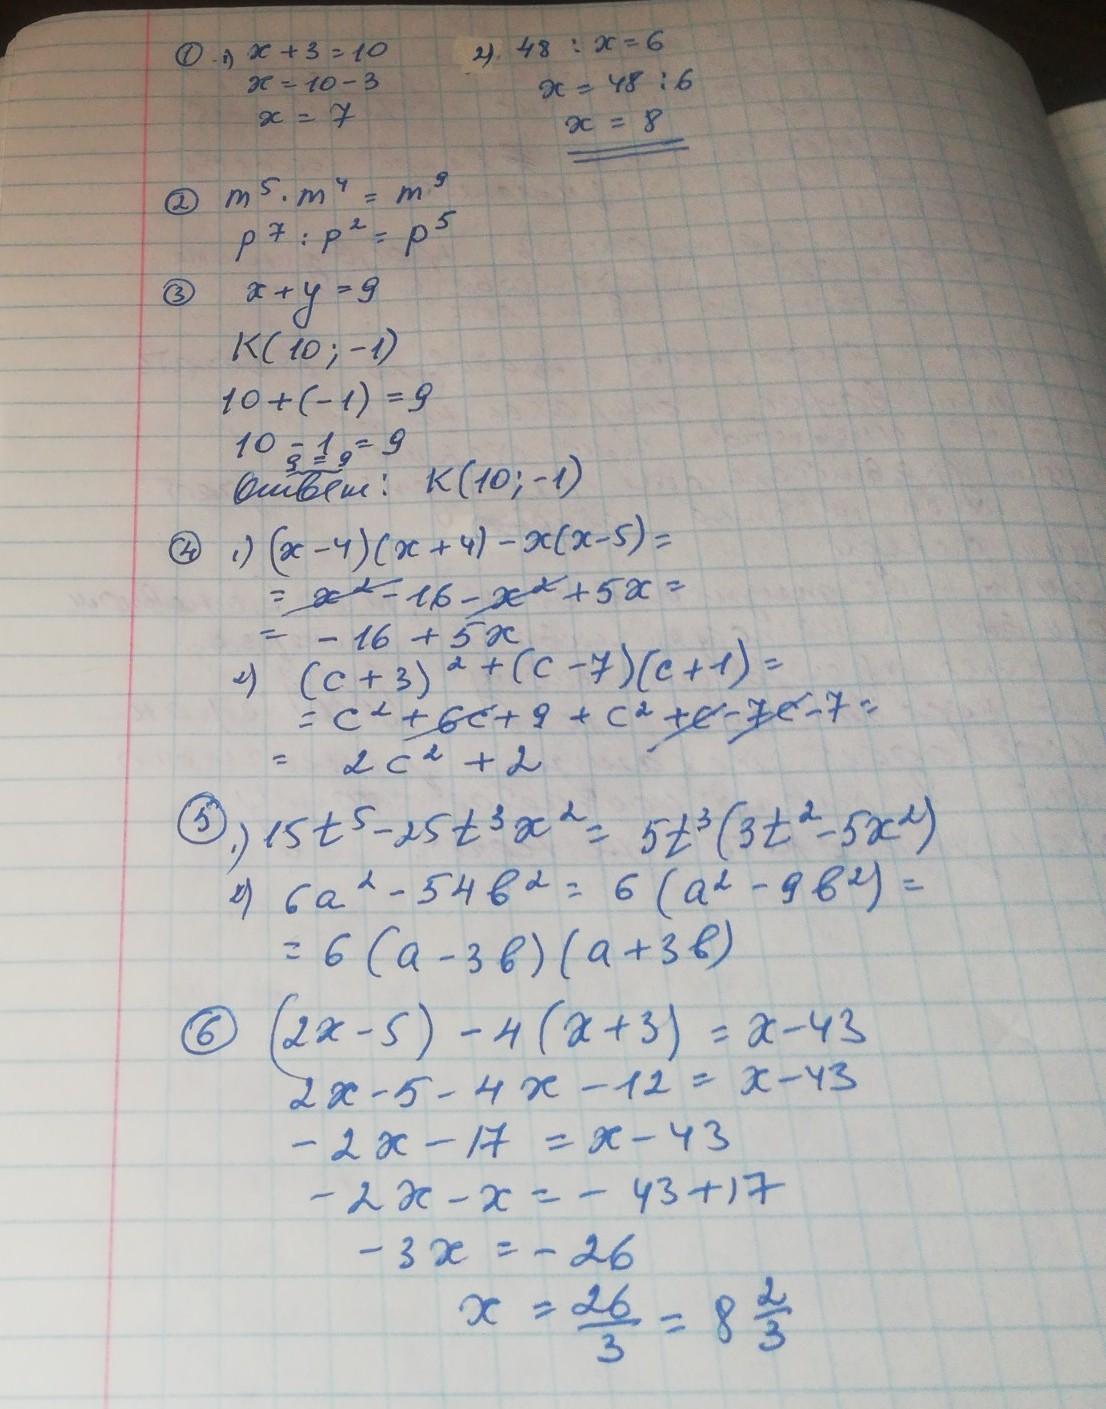 ① 1) x + 3 = 10
x = 10 - 3
x = 7
2) 48 : x = 6
x = 48 : 6
x = 8
② m⁵ · m⁴ = m⁹
p⁷ : p² = p⁵
③ x + y = 9
K(10; -1)
10 + (-1) = 9
10 - 1 = 9
9 = 9
Ответ: K(10; -1)
④ 1) (x - 4)(x + 4) - x(x - 5) =
= x² - 16 - x² + 5x =
= - 16 + 5x
2) (c + 3)² + (c - 7)(c + 1) =
= c² + 6c + 9 + c² + c - 7c - 7 =
= 2c² + 2
⑤ 1) 15t⁵ - 25t³x² = 5t³(3t² - 5x²)
2) 6a² - 54b² = 6(a² - 9b²) =
= 6(a - 3b)(a + 3b)
⑥ (2x - 5) - 4(x + 3) = x - 43
2x - 5 - 4x - 12 = x - 43
- 2x - 17 = x - 43
- 2x - x = - 43 + 17
- 3x = - 26
x = 26/3 = 8 2/3